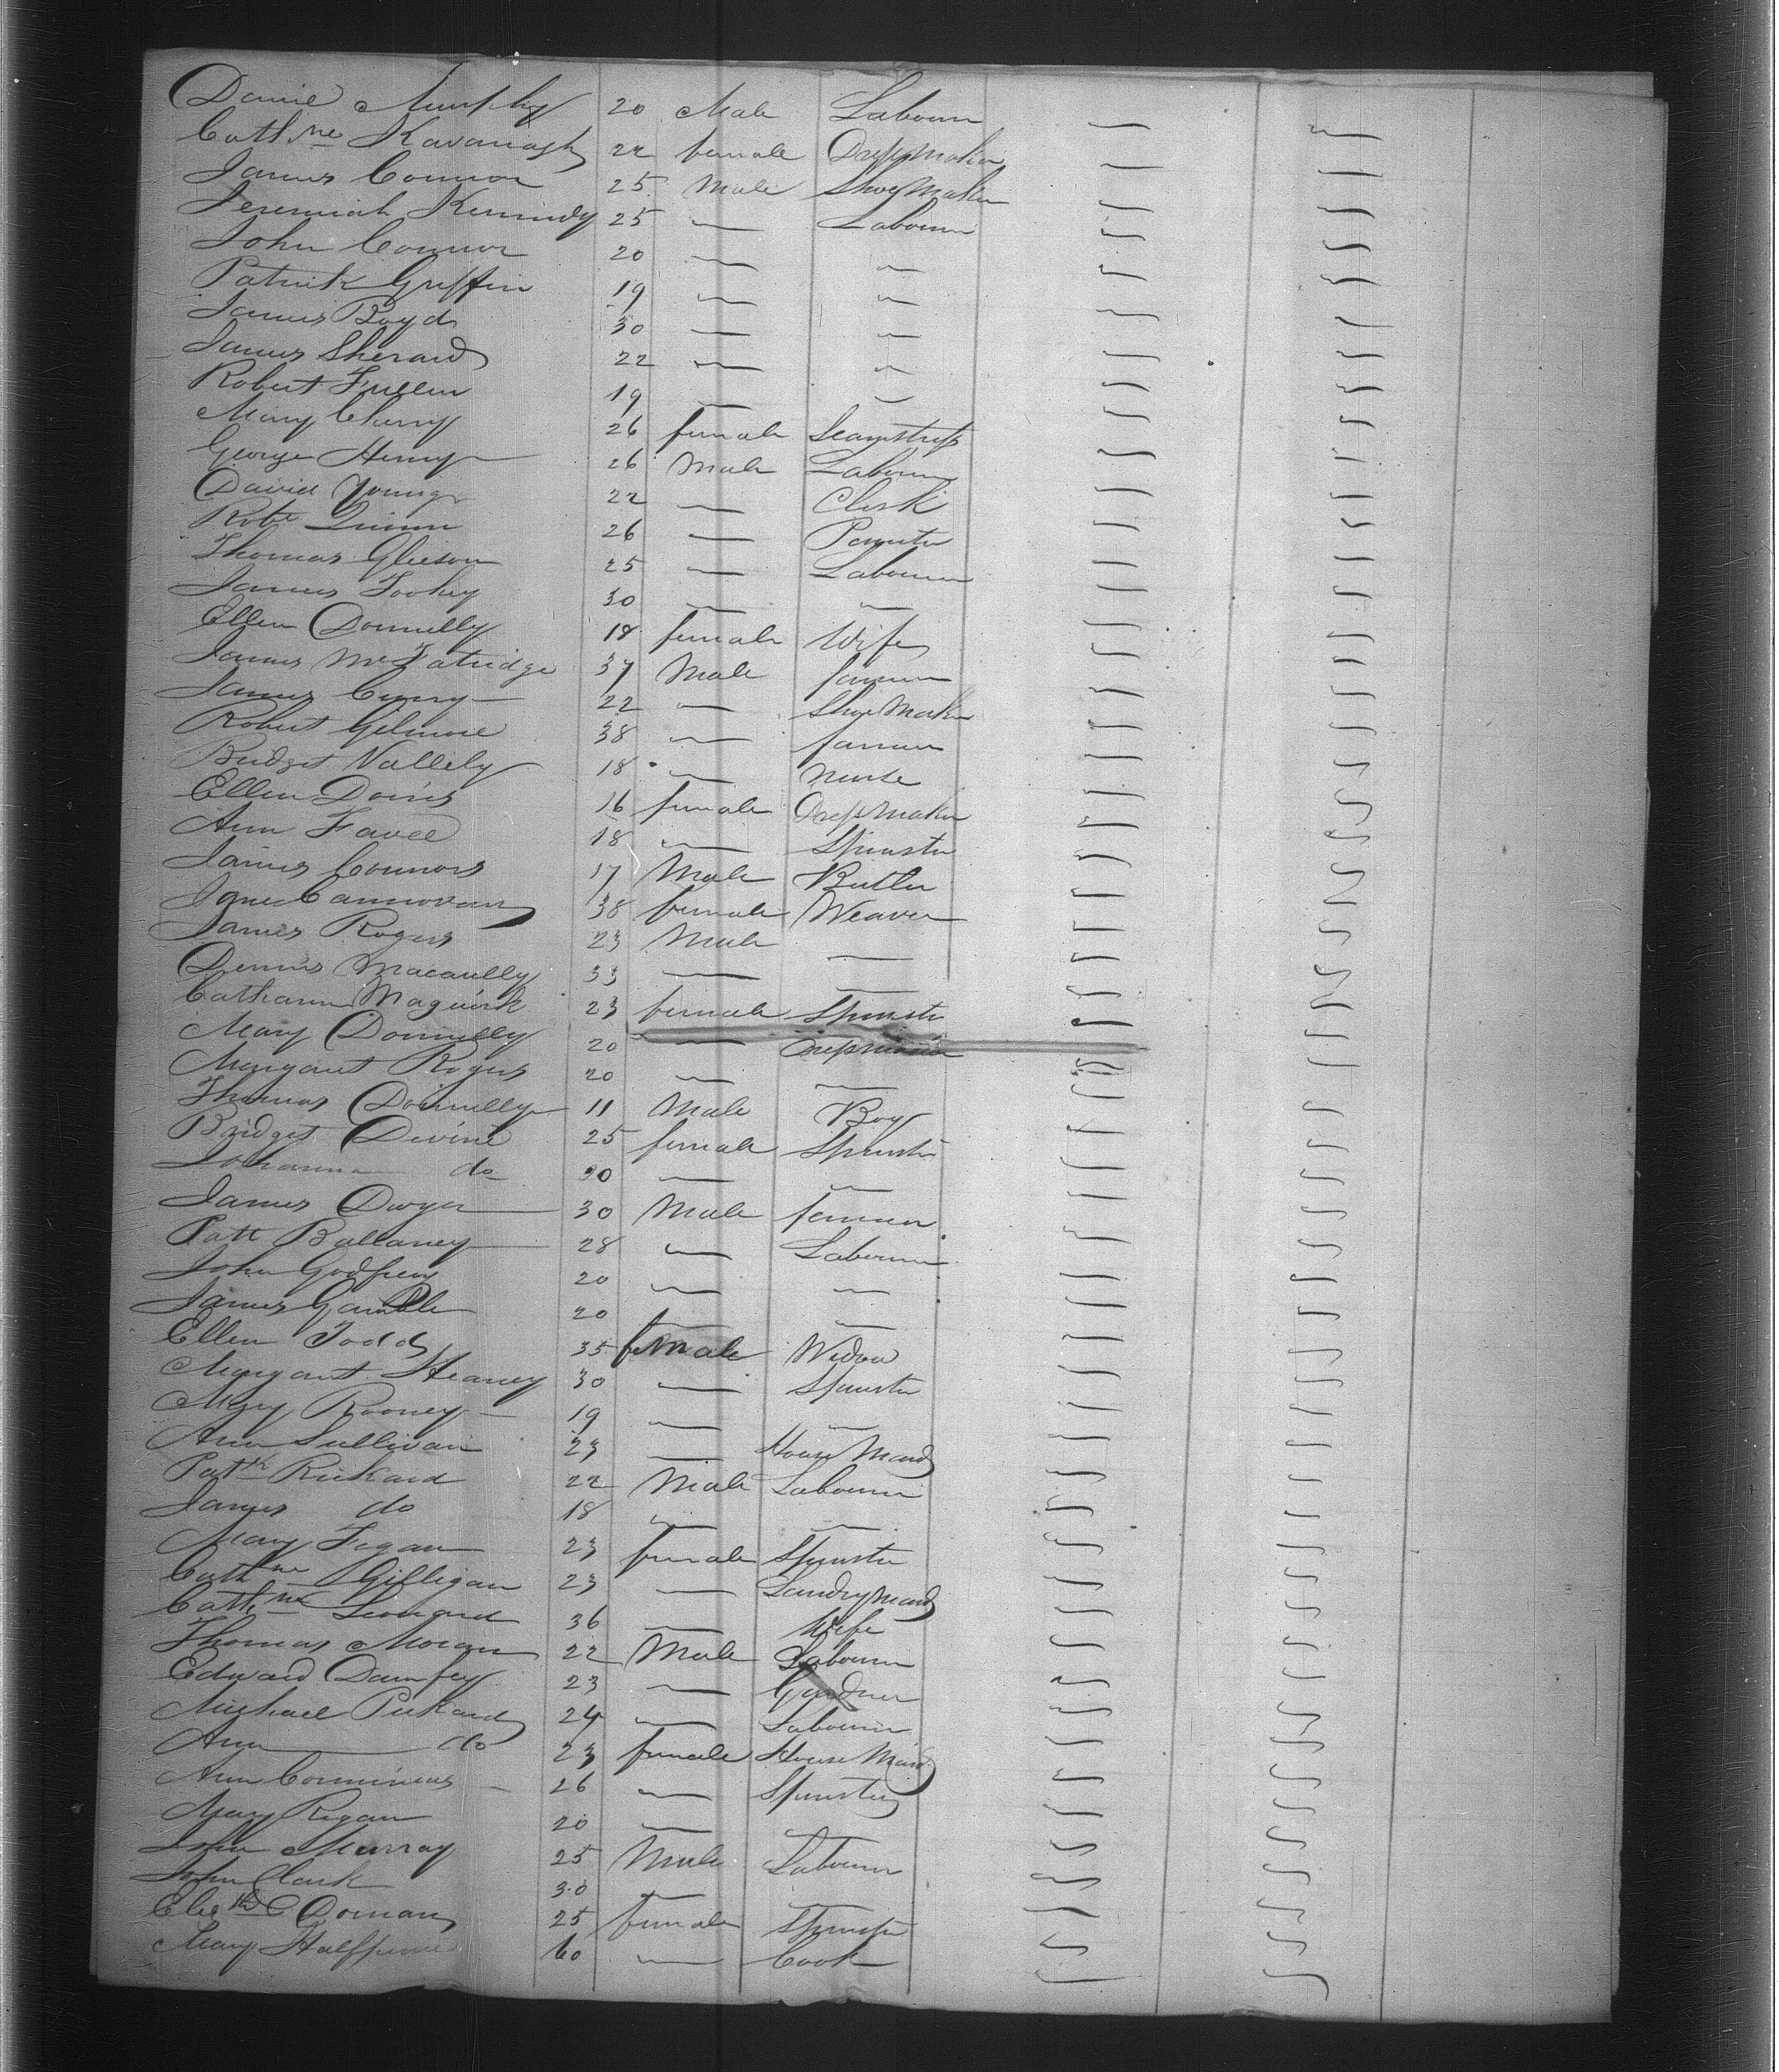 Daniel Murphy 20 Male Labourer
Cathne Kavanagh 22 female Dressmaker
James Connor 25 Male Shoe Maker
Jeremiah Kennedy 25 — Labourer
John Connor 20 — —
Patrick Griffin 19 — —
James Boyd 30 — —
James Sherard 22 — —
Robert Fullen 19 — —
Mary Cherry 26 female Seamstress
George Henry 26 Male Labourer
David Young 22 — Clerk
Robt Quinn 26 — Painter
Thomas Gleeson 25 — Labourer
James Toohey 30 — —
Ellen Donnelly 18 female Wife
James McFatridge 37 Male farmer
James Curry 22 — Shoe Maker
Robert Gilmore 38 — farmer
Bridget Vallely 18 — Nurse
Ellen Doris 16 female Dressmaker
Ann Favel 18 — Spinster
James Connors 17 Male Butler
Jane Cannovan 38 female Weaver
James Rogers 23 Male —
Dennis Macaully 33 — —
Catharine Maguirk 23 female Spinster
Mary Donnelly 20 — Dressmaker
Margaret Rogers 20 — —
Thomas Donnelly 11 Male Boy
Bridget Devine 25 female Spinster
Johanna do 20 — —
James Dwyer 30 Male farmer
Patt Ballaney 28 — Labourer
John Godfrey 20 — —
James Gamble 20 — —
Ellen Todd 35 female Widow
Margaret Heaney 30 — Spinster
Mary Rooney 19 — —
Ann Sullivan 23 — House Maid
Pattk Rickard 22 Male Labourer
James do 18 — —
Mary Fegan 23 female Spinster
Cathne Gilligan 23 — Laundry Maid
Cathne Leonard 36 — Wife
Thomas Moran 22 Male Labourer
Edward Damfey 23 — Gardner
Michael Pickard 24 — Labourer
Ann do 23 female House Maid
Ann Commineus 26 — Spinster
Mary Regan 20 — —
John Murray 25 Male Labourer
John Clark 30 — —
Elizth Dornan 25 female Spinster
Mary Halfpenne 60 — Cook